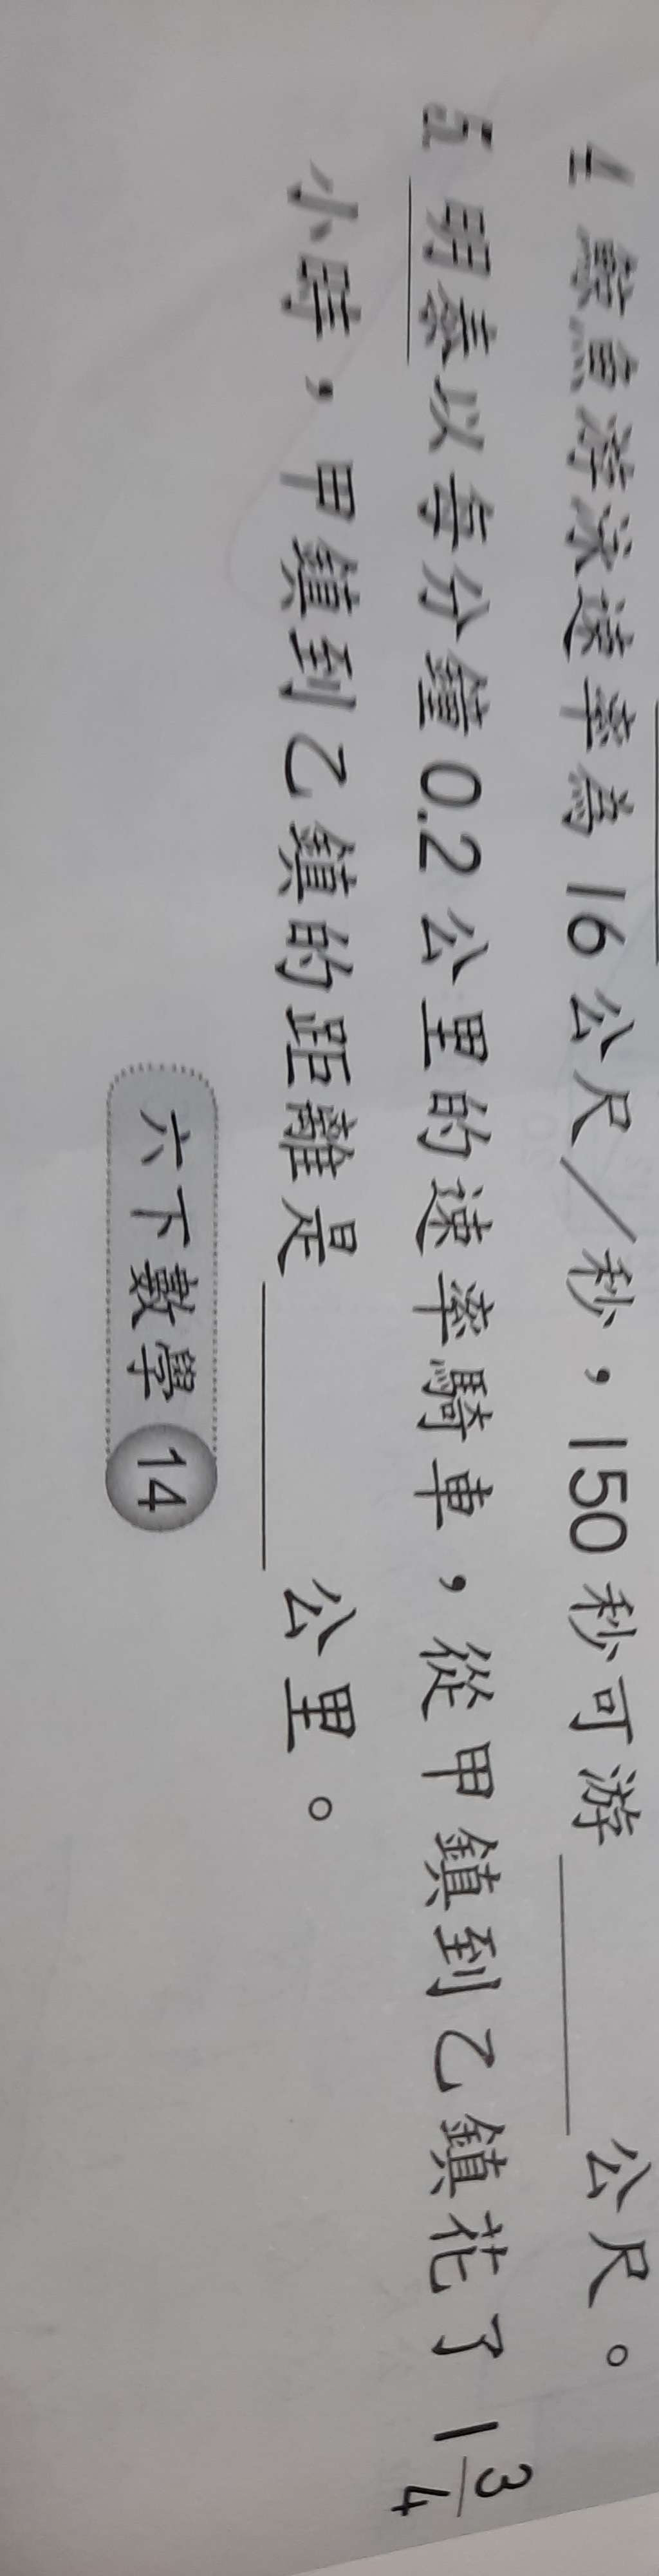 4. 鯨魚游泳速率為 16 公尺／秒，150 秒可游______公尺。
5. 明泰以每分鐘 0.2 公里的速率騎車，從甲鎮到乙鎮花了 1 3/4
小時，甲鎮到乙鎮的距離是______公里。
六下數學 14